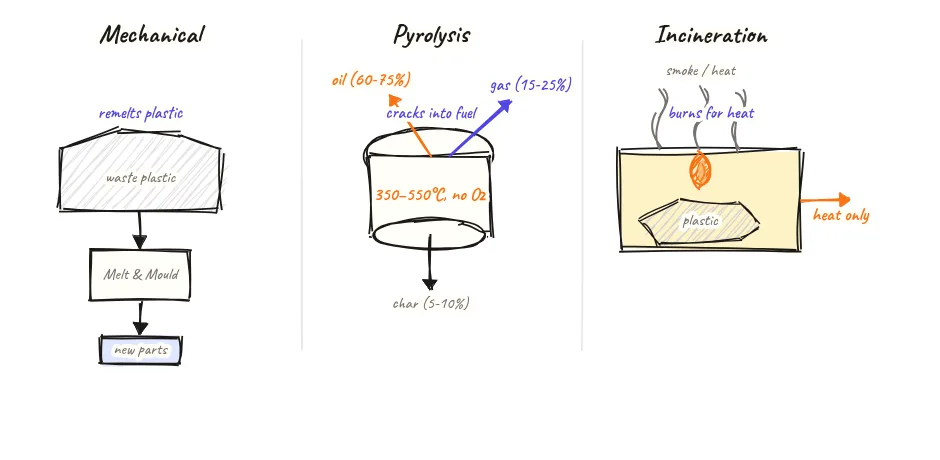 Mechanical
remelts plastic
waste plastic
Melt & Mould
new parts
Pyrolysis
oil (60-75%)
gas (15-25%)
cracks into fuel
350–550°C, no O₂
char (5-10%)
Incineration
smoke / heat
burns for heat
plastic
heat only